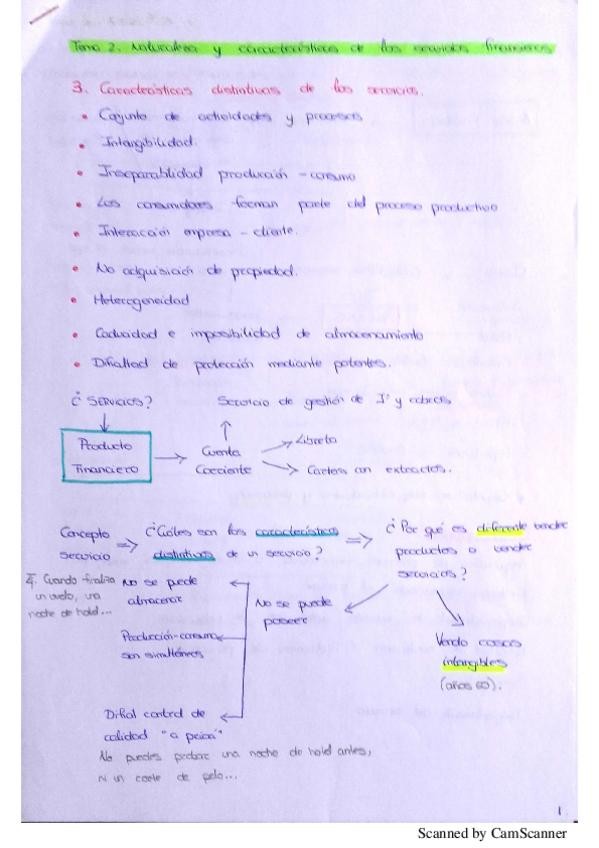 Tema 2. Naturaleza y características de los servicios financieros
3. Características distintivas de los servicios.
• Conjunto de actividades y procesos
• Intangibilidad.
• Inseparabilidad producción - consumo
• Los consumidores forman parte del proceso productivo
• Interacción empresa - cliente.
• No adquisición de propiedad.
• Heterogeneidad
• Caducidad e imposibilidad de almacenamiento
• Dificultad de protección mediante patentes.
¿ SERVICIOS? Servicio de gestión de y cobros.
Producto Financiero → Cuenta Corriente
→ Libreta
→ Cartera con extractos.
Concepto servicio ⇒ ¿Cuáles son las características distintivas de un servicio? ⇒ ¿Por qué es diferente vender productos o vender servicios?
Cuando finaliza un vuelo, una noche de hotel...
No se puede almacenar
No se puede poseer
Producción-consumo son simultáneos
Vendo cosas intangibles (años 60).
Difícil control de calidad "a priori"
No puedes probar una noche de hotel antes,
ni un corte de pelo...
1
Scanned by CamScanner